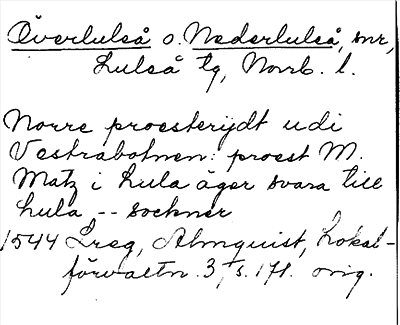 Överluleå o. Nederluleå, snr,
Luleå tg, Norrb. l.
Norre proesterijdt udi
Vestrabotnen: proest M.
Matz i Lula äger svara till
Lula -- sockner
1544 Lreg, Almquist, Lokal-
förvaltn. 3, s. 171. orig.